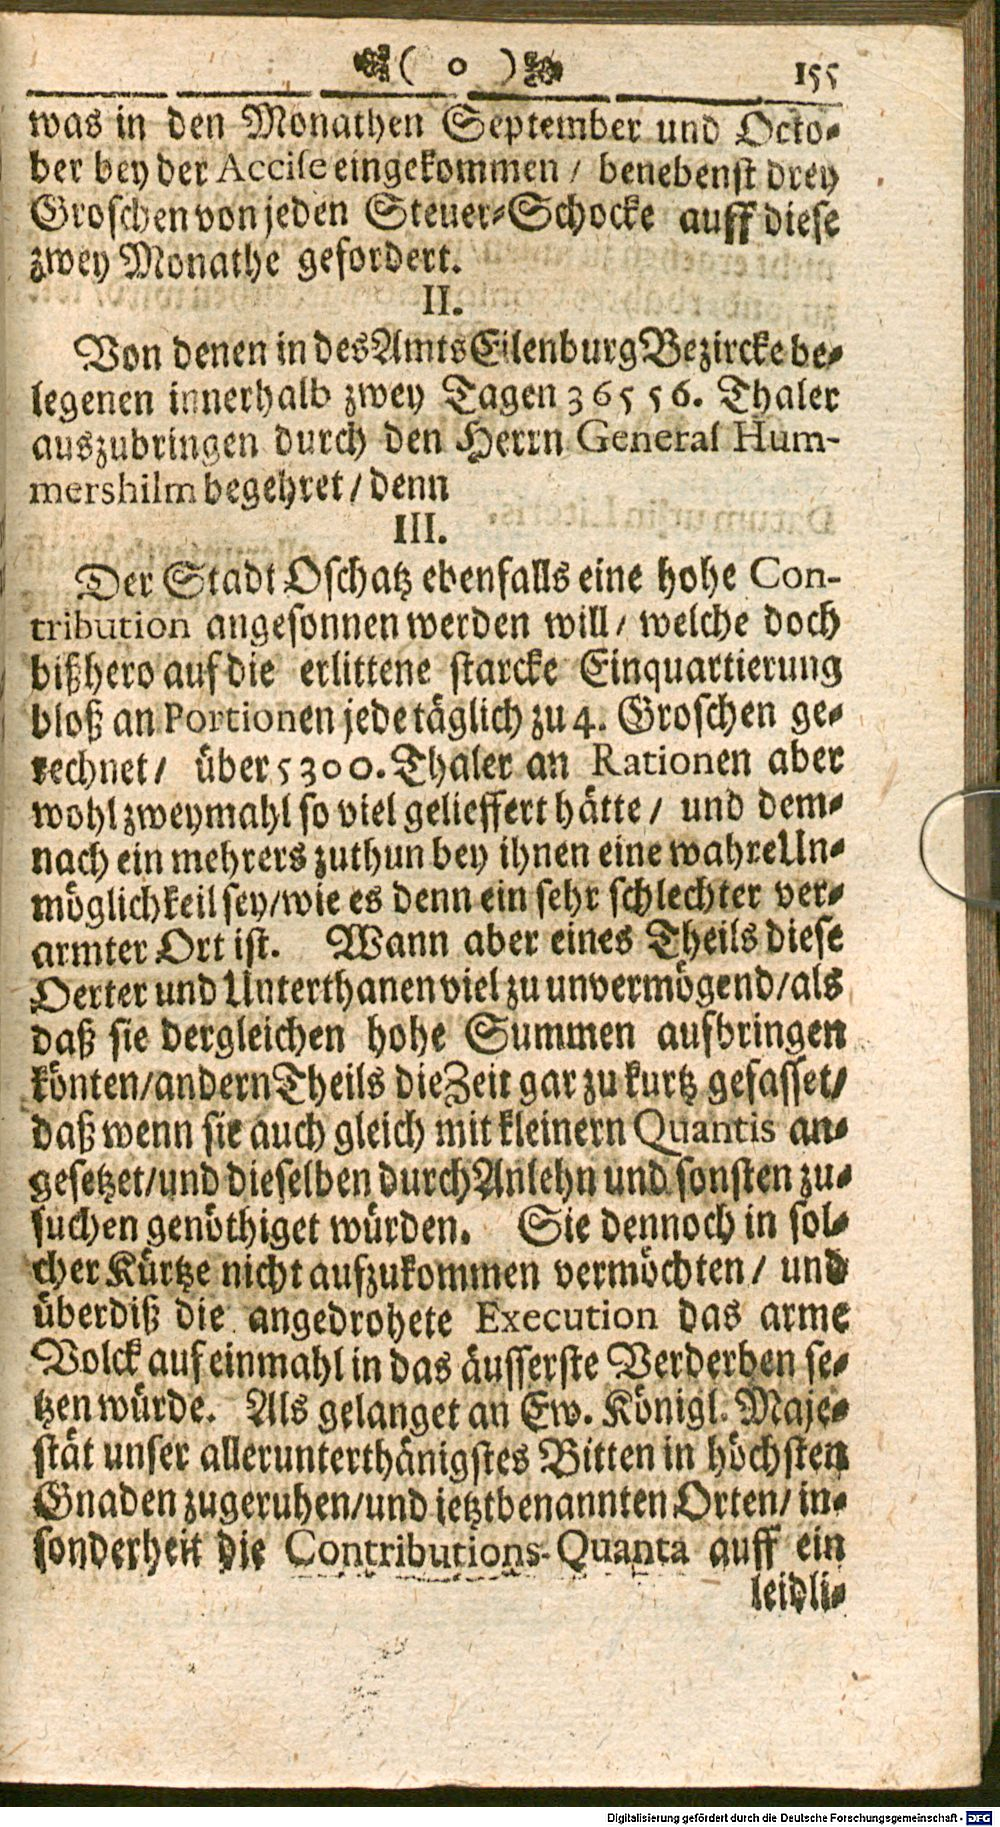 ( o ) 155
was in den Monathen September und Octo-
ber bey der Accise eingekommen / benebenst drey
Groschen von jeden Steuer-Schocke auff diese
zwey Monathe gefordert.
II.
Von denen in des Amts Eilenburg Bezircke be-
legenen innerhalb zwey Tagen 36556. Thaler
auszubringen durch den Herrn General Hum-
mershilm begehret / denn
III.
Der Stadt Oschatz ebenfalls eine hohe Con-
tribution angesonnen werden will / welche doch
bißhero auf die erlittene starcke Einquartierung
bloß an Portionen jede täglich zu 4. Groschen ge-
rechnet / über 5300. Thaler an Rationen aber
wohl zweymahl so viel gelieffert hätte / und dem-
nach ein mehrers zuthun bey ihnen eine wahre Un-
möglichkeil sey / wie es denn ein sehr schlechter ver-
armter Ort ist. Wann aber eines Theils diese
Oerter und Unterthanen viel zu unvermögend / als
daß sie dergleichen hohe Summen aufbringen
könten / andern Theils die Zeit gar zu kurtz gefasset /
daß wenn sie auch gleich mit kleinern Quantis an-
gesetzet / und dieselben durch Anlehn und sonsten zu-
suchen genöthiget würden. Sie dennoch in sol-
cher Kürtze nicht aufzukommen vermöchten / und
überdiß die angedrohete Execution das arme
Volck auf einmahl in das äusserste Verderben se-
tzen würde. Als gelanget an Ew. Königl. Maje-
stät unser allerunterthänigstes Bitten in höchsten
Gnaden zugeruhen / und jetztbenannten Orten / in-
sonderheit die Contributions-Quanta auff ein
leidli-
Digitalisierung gefördert durch die Deutsche Forschungsgemeinschaft - DFG